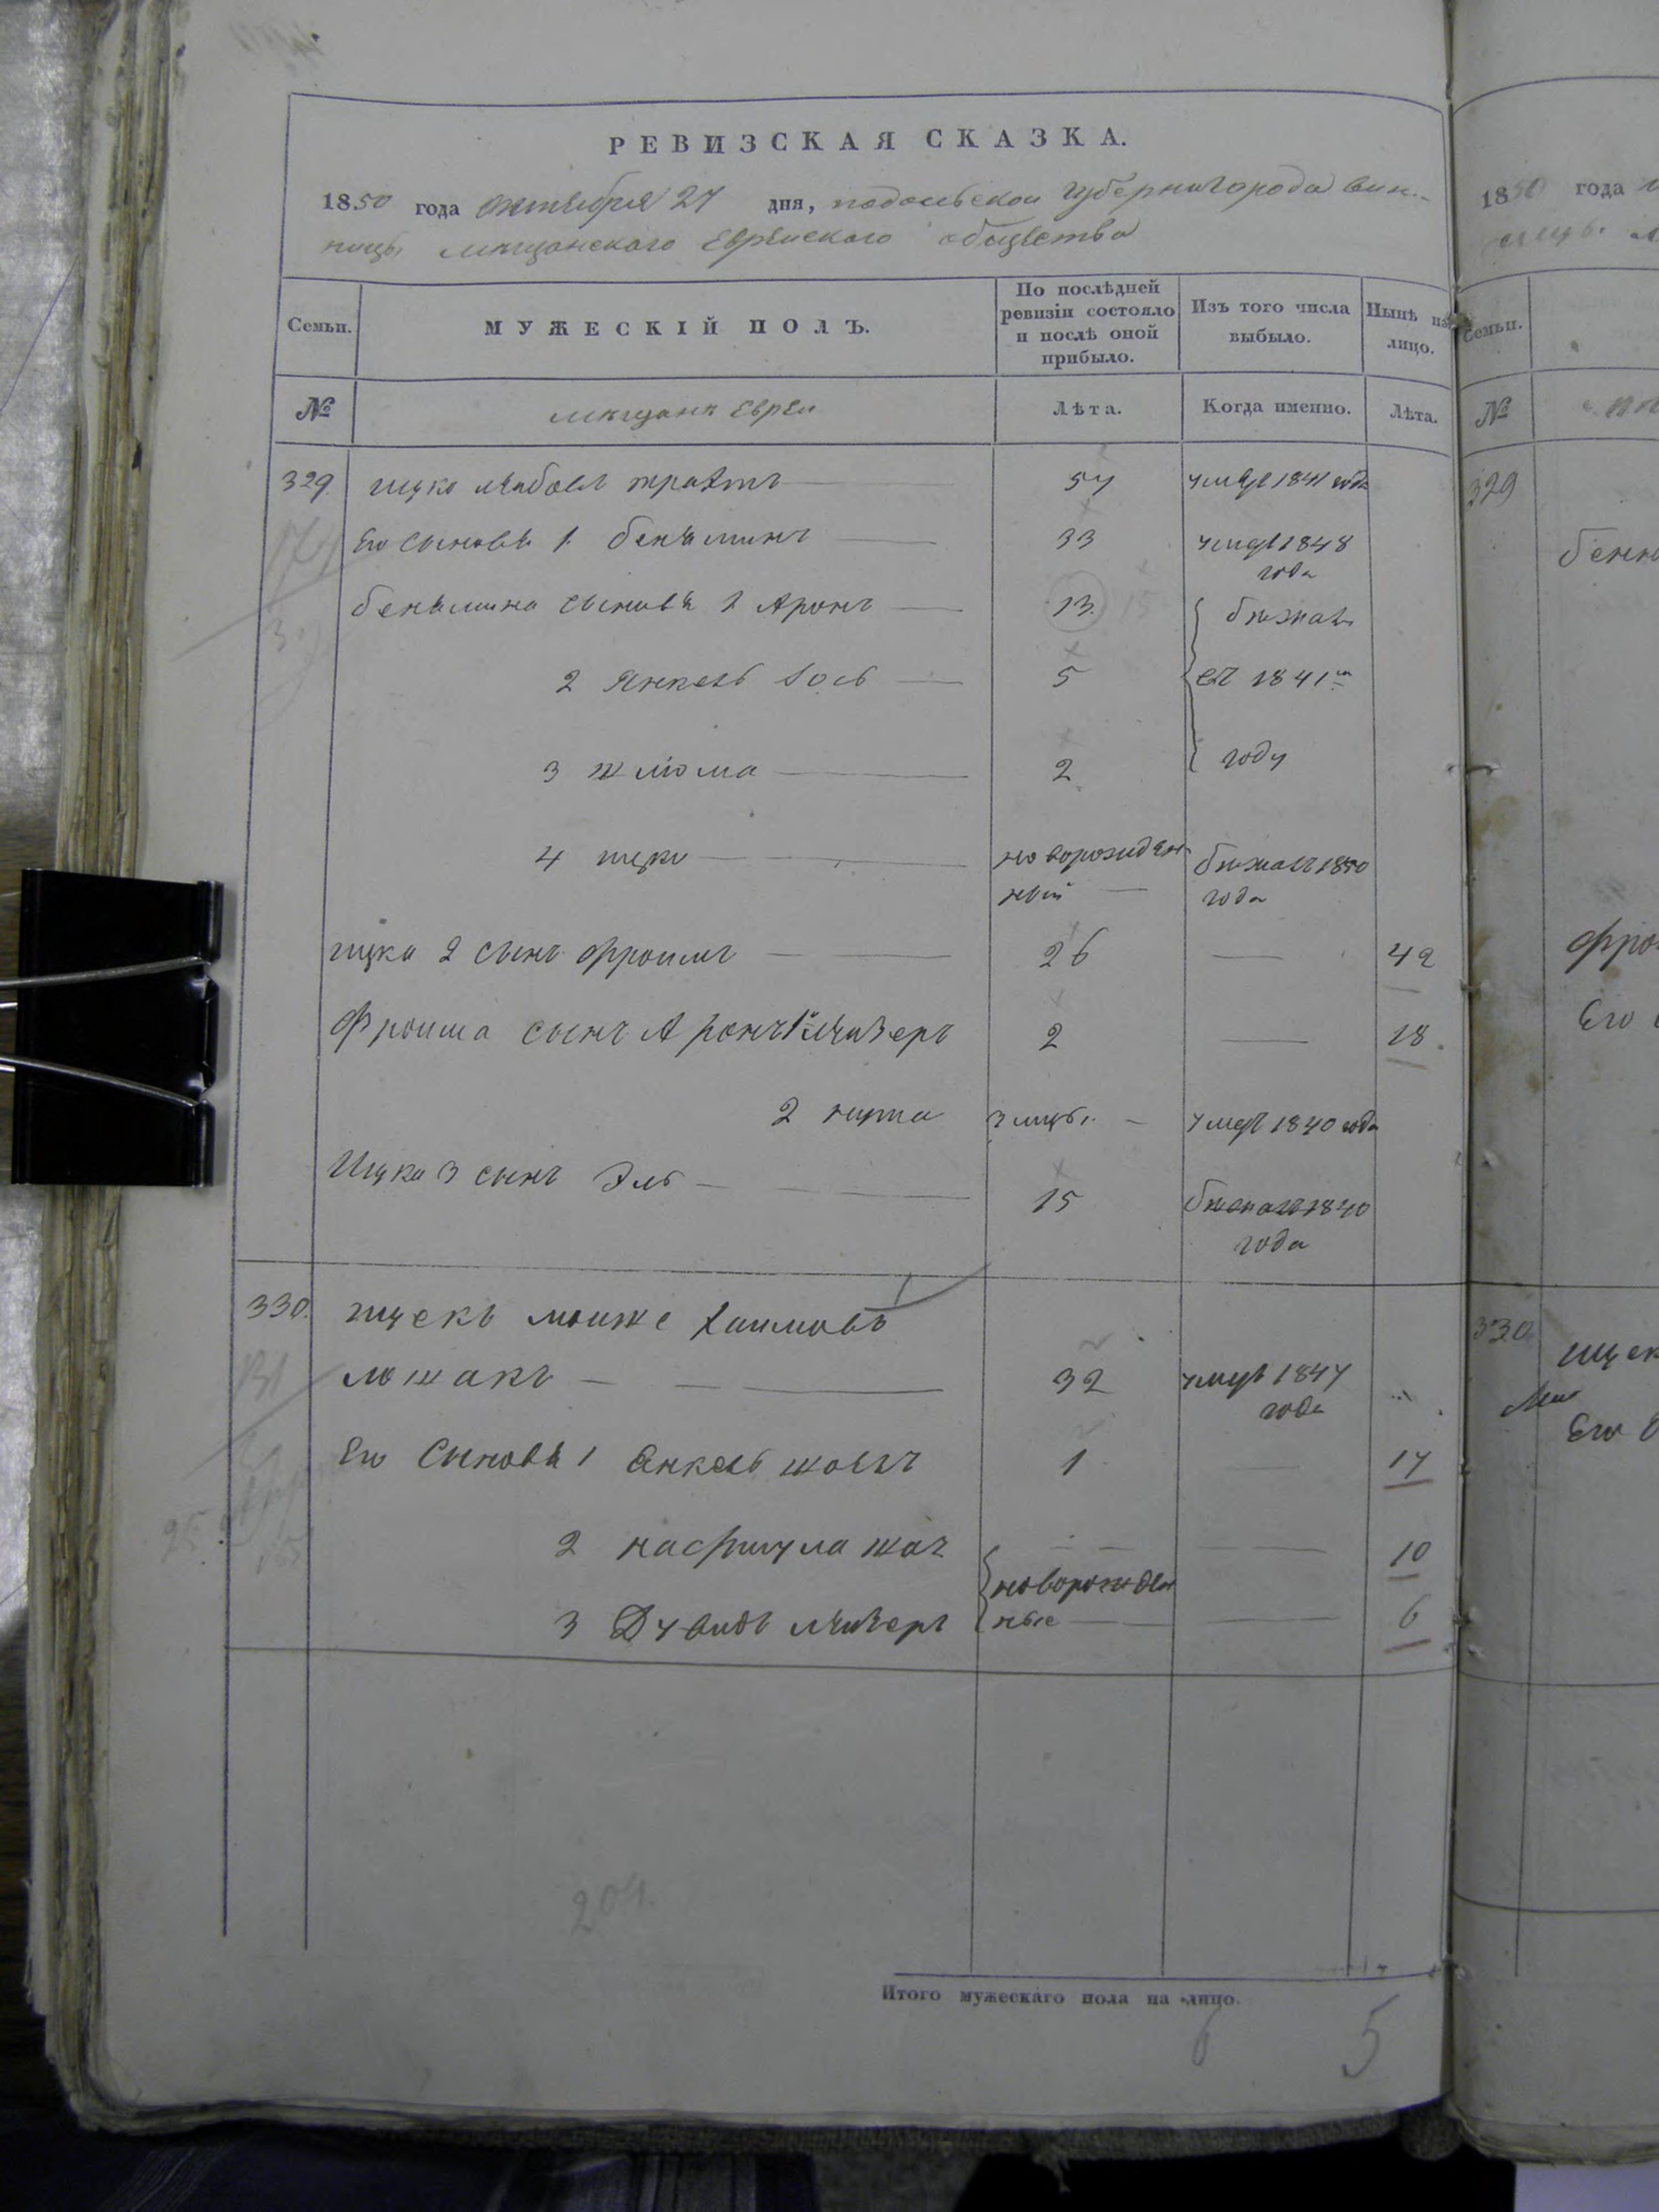 РЕВИЗСКАЯ СКАЗКА.
1850 года октября 27 дня, подольской губернии города вин-
ницы мещанского Еврейского общества
Семьи. МУЖЕСКІЙ ПОЛЪ. По послѣдней ревизіи состояло и послѣ оной прибыло. Изъ того числа выбыло. Нынѣ на лицо.
№ мещане Евреи Лѣта. Когда именно. Лѣта.
329 ицко лейбовъ 57 умеръ 1841 года
Его сыновья 1 беньяминъ 33 умеръ 1848
года
беньямина сыновья 1 Аронъ 13 бежалъ
2 Янкель Іось 5 въ 1841м
3 шлюма 2 году
4 ицко новорожден- бежалъ 1850
ный года
ицка 2 сынъ фроимъ 26 42
Фроима сынъ Аронъ 1й лейзеръ 2 18
2 нута 3 умеръ 1840 года
Ицка 3 сынъ Эль 15 бежалъ 1840
года
330. ицекъ мошке хаимовъ
лошакъ 32 умеръ 1847
года
Его Сыновья 1 Янкель 1 17
2 10
новорожден
3 Дувидъ лейзеръ ные 6
204.
Итого мужескаго пола на лицо.
5
1850 года
Семьи.
№
329
фро
Его
330.
ицек
Его